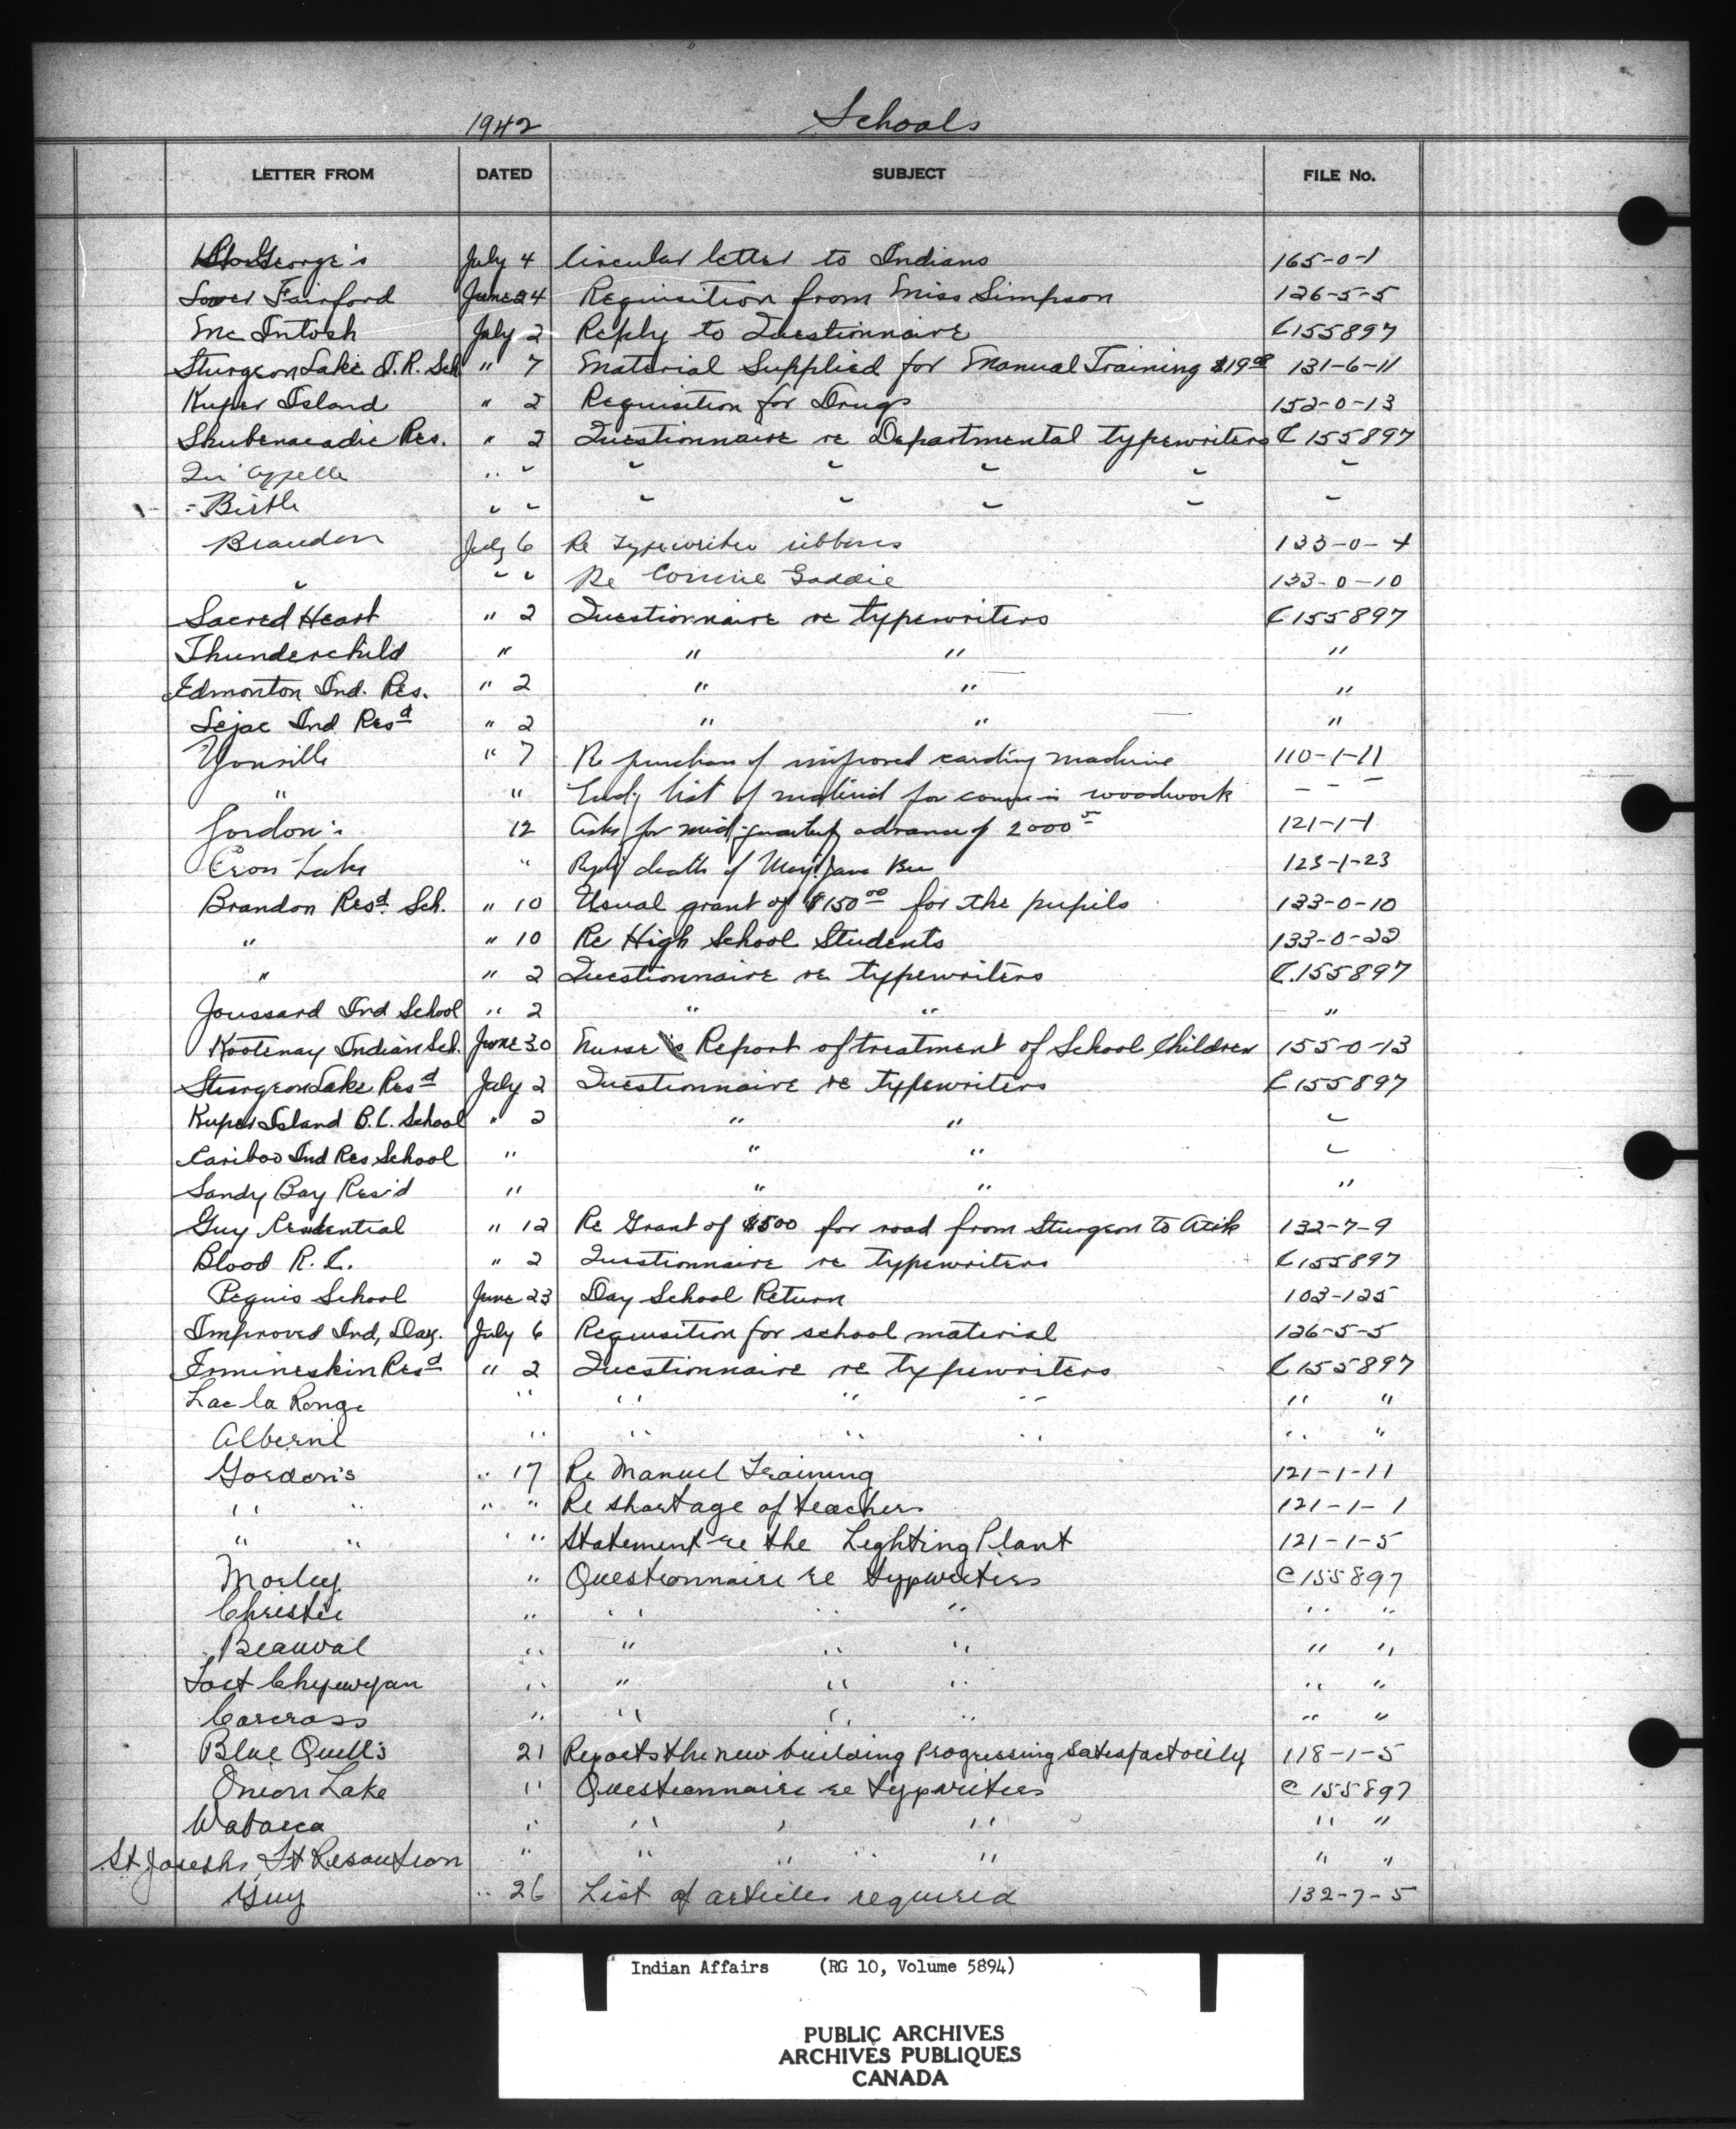 1942 Schools
LETTER FROM DATED SUBJECT FILE No.
St. George's July 4 Circular letter to Indians 165-0-1
Lower Fairford June 24 Requisition from Miss Simpson 126-5-5
Mc Intosh July 2 Reply to Questionnaire C155897
Sturgeon Lake I.R. Sch " 7 Material Supplied for Manual Training $19 131-6-11
Kuper Island " 2 Requisition for Drugs 152-0-13
Shubenacadie Res. " 2 Questionnaire re Departmental typewriters C 155897
Qu'Appelle " " " " " " "
Birtle " " " " " " "
Brandon July 6 Re Typewriter ribbons 133-0-4
" " " Re Connie Gaddie 133-0-10
Sacred Heart " 2 Questionnaire re typewriters C155897
Thunderchild " " " "
Edmonton Ind. Res. " 2 " " "
Lejac Ind. Resd " 2 " " "
Youville " 7 Re purchase of improved carding machine 110-1-11
" " List of material for course in woodwork " " "
Gordon's 12 Asks for mid-quarterly advance of 2000 121-1-1
" death of Mary Jane 123-1-23
Brandon Resd. Sch. " 10 Usual grant of $150.00 for the pupils 133-0-10
" " 10 Re High School Students 133-0-22
" " 2 Questionnaire re typewriters C.155897
Joussard Ind School " 2 " " "
Kootenay Indian Sch. June 30 Nurse's Report of treatment of School Children 155-0-13
Sturgeon Lake Resd July 2 Questionnaire re typewriters C155897
Kuper Island B.C. School " 2 " " "
Cariboo Ind Res School " " " "
Sandy Bay Res'd " " " "
Guy Residential " 12 Re Grant of $500 for road from Sturgeon to Atik 132-7-9
Blood R.C. " 2 Questionnaire re typewriters C155897
Peguis School June 23 Day School Return 103-125
Improved Ind, Day. July 6 Requisition for school material 126-5-5
Ermineskin Resd " 2 Questionnaire re typewriters C155897
Lac la Ronge " " " " " "
Alberni " " " " " "
Gordon's " 17 Re Manuel Training 121-1-11
" " " " Re shortage of teachers 121-1-1
" " " " Statement re the Lighting Plant 121-1-5
Morley " Questionnaire re typewriters C155897
Christie " " " " " "
Beauval " " " " " "
Fort Chypewyan " " " " " "
Carcross " " " " " "
Blue Quill's 21 Reports the new building progressing satisfactorily 118-1-5
Onion Lake " Questionnaire re typwriters C155897
Wabasca " " " " " "
St. Josephs, Ft Resoution " " " " " " "
Guy " 26 List of articles required 132-7-5
Indian Affairs (RG 10, Volume 5894)
PUBLIC ARCHIVES
ARCHIVES PUBLIQUES
CANADA